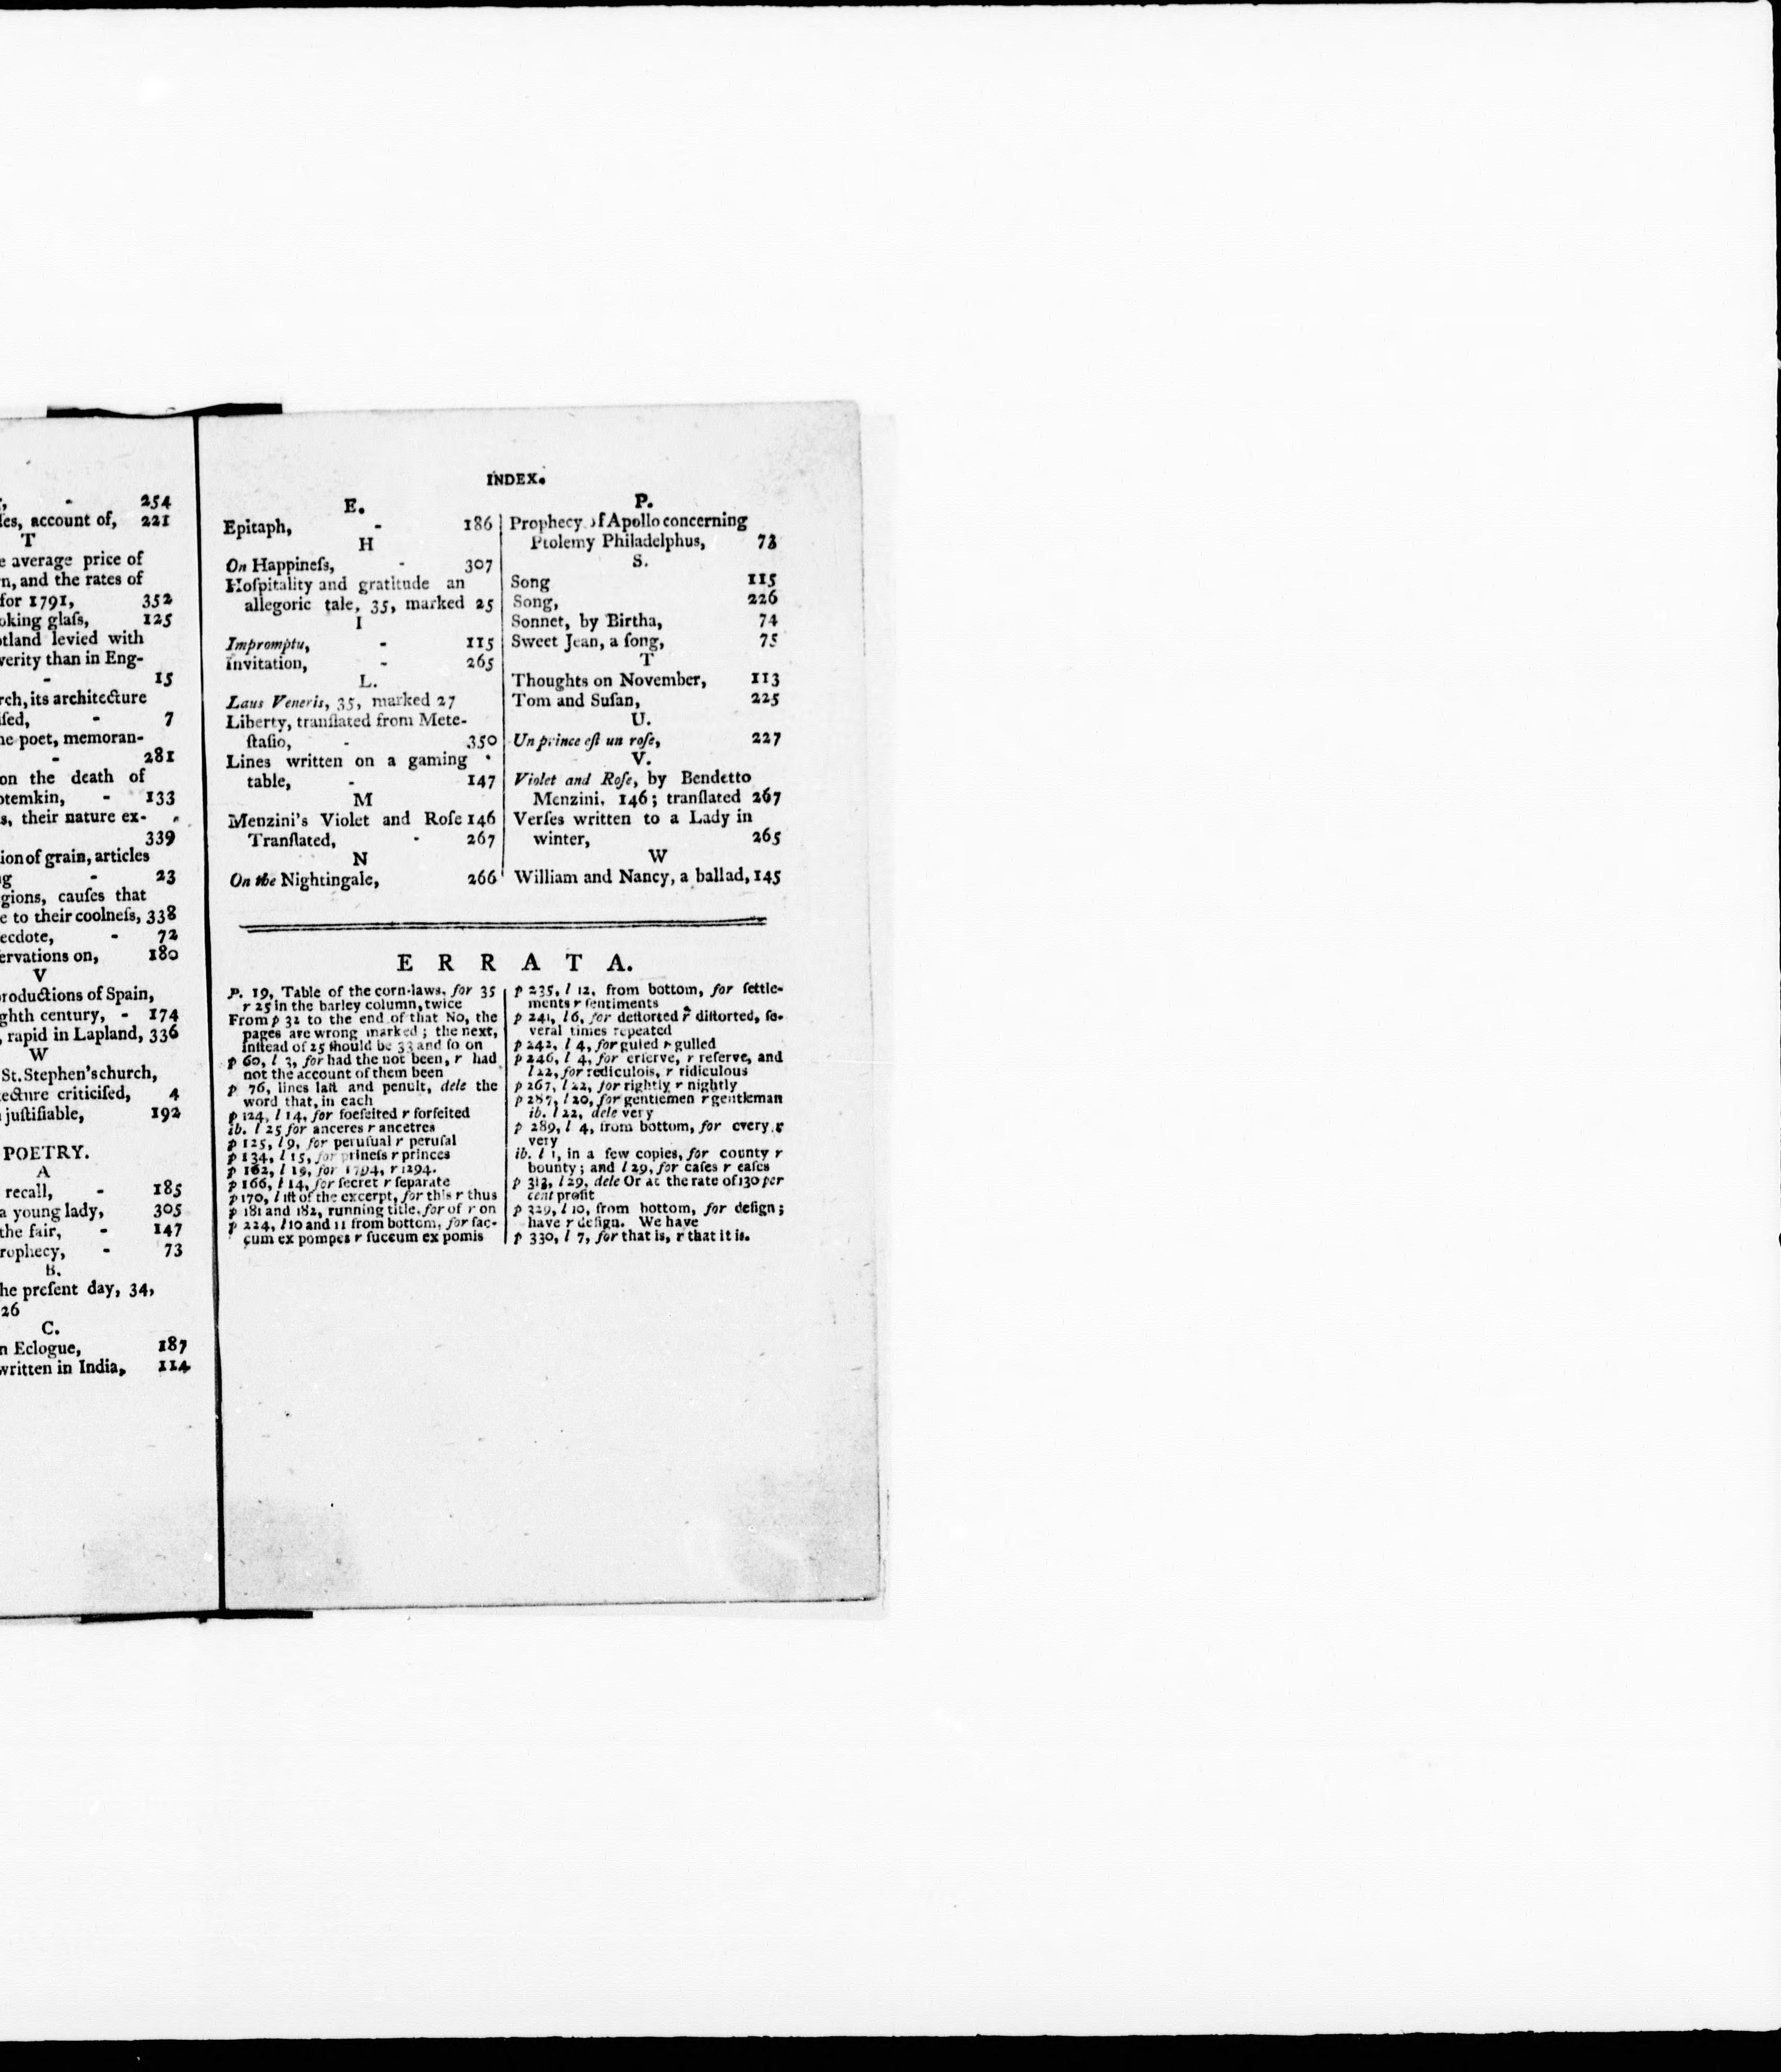 254
les, account of, 221
T
e average price of
n, and the rates of
for 1791, 352
oking glaſs, 125
otland levied with
verity than in Eng-
- 15
rch, its architecture
iſed, - 7
he poet, memoran-
- 281
on the death of
otemkin, - 133
s, their nature ex-
339
ion of grain, articles
g - 23
gions, cauſes that
e to their coolneſs, 338
ecdote, - 72
ervations on, 180
V
roductions of Spain,
ghth century, - 174
, rapid in Lapland, 336
W
St. Stephen's church,
tecture criticiſed, 4
juſtifiable, 192
POETRY.
A
recall, - 185
a young lady, 305
the fair, - 147
rophecy, - 73
B.
he preſent day, 34,
26
C.
n Eclogue, 187
written in India, 114
INDEX.
E.
Epitaph, - 186
H
On Happineſs, - 307
Hoſpitality and gratitude an
allegoric tale, 35, marked 25
I
Impromptu, - 115
Invitation, - 265
L.
Laus Veneris, 35, marked 27
Liberty, tranſlated from Mete-
ſtaſio, - 350
Lines written on a gaming
table, - 147
M
Menzini's Violet and Roſe 146
Tranſlated, - 267
N
On the Nightingale, 266
P.
Prophecy of Apollo concerning
Ptolemy Philadelphus, 73
S.
Song 115
Song, 226
Sonnet, by Birtha, 74
Sweet Jean, a ſong, 75
T
Thoughts on November, 113
Tom and Suſan, 225
U.
Un prince eſt un roſe, 227
V.
Violet and Roſe, by Bendetto
Menzini, 146; tranſlated 267
Verſes written to a Lady in
winter, 265
W
William and Nancy, a ballad, 145
ERRATA.
P. 19, Table of the corn-laws, for 35
r 25 in the barley column, twice
From p 32 to the end of that No, the
pages are wrong marked; the next,
inſtead of 25 ſhould be 33 and ſo on
p 60, l 3, for had the not been, r had
not the account of them been
p 76, lines laſt and penult, dele the
word that, in each
p 124, l 14, for foefeited r forfeited
ib. l 25 for anceres r ancetres
p 125, l 9, for peruſual r peruſal
p 134, l 15, for prineſs r princes
p 162, l 19, for 1794, r 1294.
p 166, l 14, for ſecret r ſeparate
p 170, l 1ſt of the excerpt, for this r thus
p 181 and 182, running title, for of r on
p 224, l 10 and 11 from bottom, for ſac-
cum ex pompes r ſuccum ex pomis
p 235, l 12, from bottom, for ſettle-
ments r ſentiments
p 241, l 6, for deſtorted r diſtorted, ſe-
veral times repeated
p 242, l 4, for guled r gulled
p 246, l 4, for erſerve, r reſerve, and
l 22, for rediculois, r ridiculous
p 267, l 22, for rightly r nightly
p 287, l 20, for gentiemen r gentleman
ib. l 22, dele very
p 289, l 4, from bottom, for every r
very
ib. l 1, in a few copies, for county r
bounty; and l 29, for caſes r eaſes
p 313, l 29, dele Or at the rate of 130 per
cent profit
p 329, l 10, from bottom, for deſign;
have r deſign. We have
p 330, l 7, for that is, r that it is.